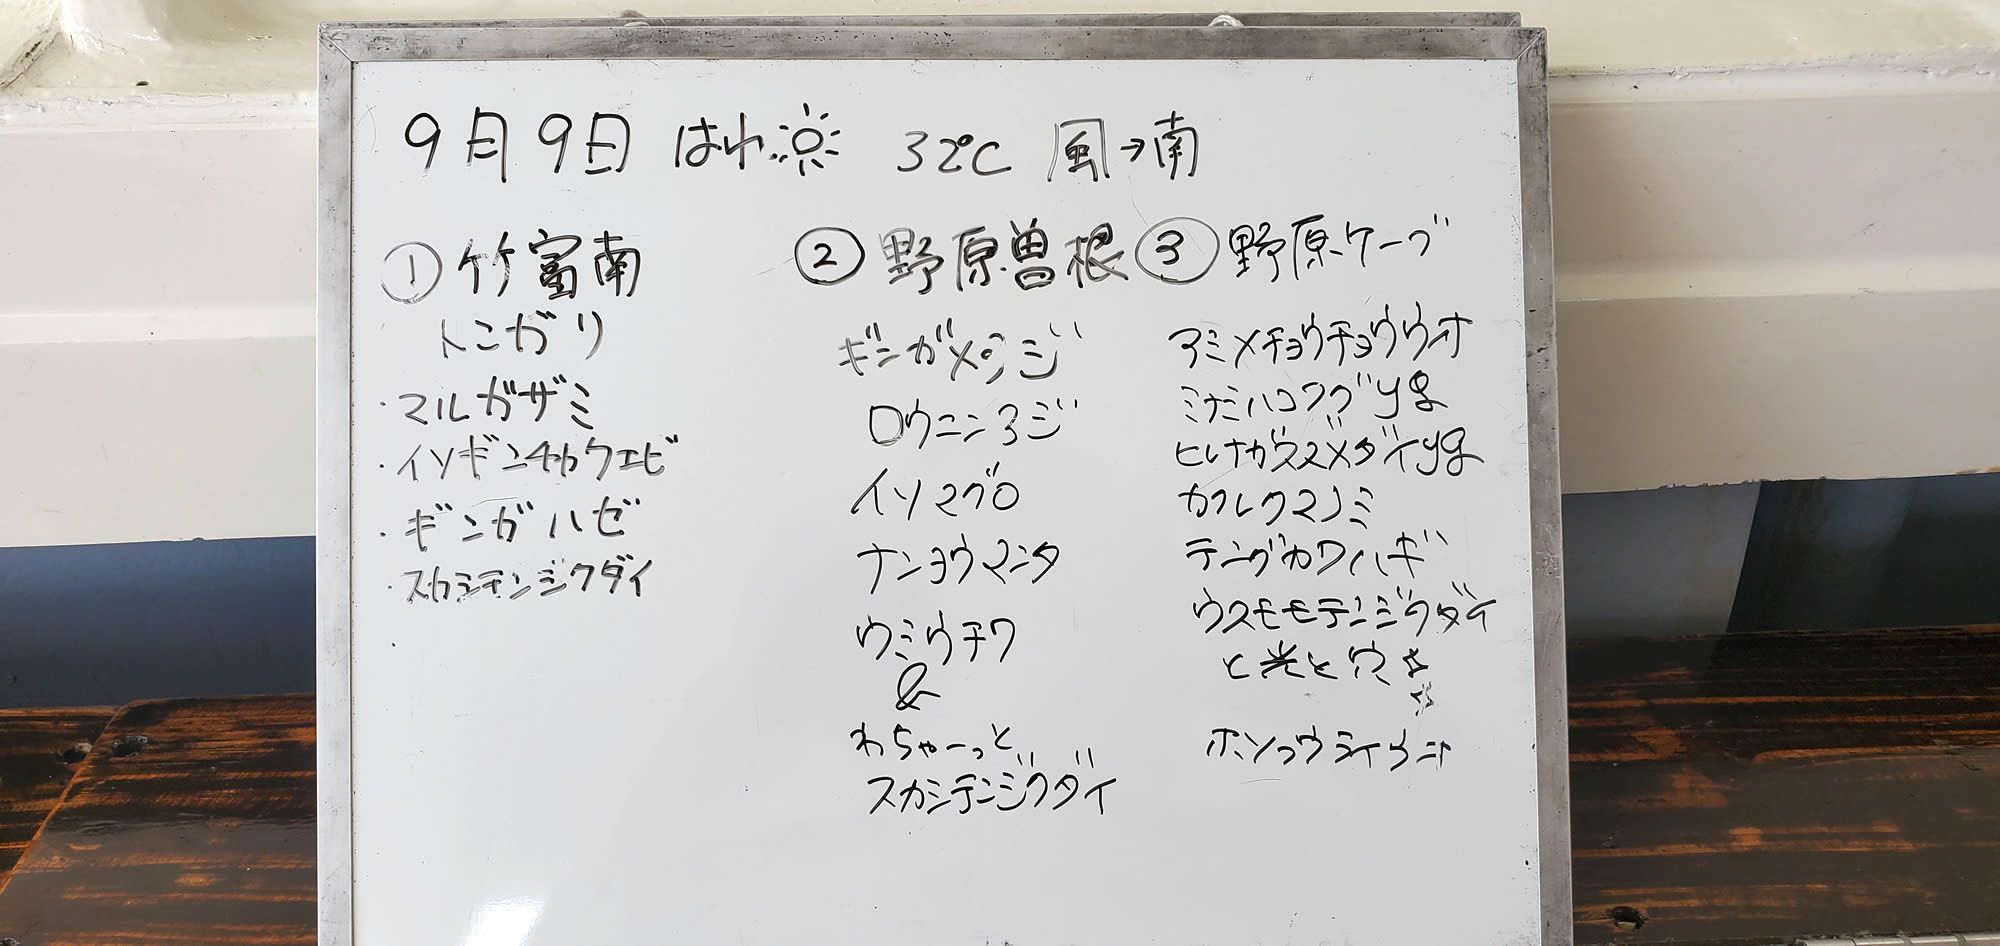 9月9日 はれ 32℃ 風→南
①竹富南
トンガリ
・マルガザミ
・イソギンチャクエビ
・ギンガハゼ
・スカシテンジクダイ
②野原曽根
ギンガメアジ
ロウニンアジ
イソマグロ
ナンヨウマンタ
ウミウチワ
&
わちゃーっと
スカシテンジクダイ
③野原ケーブ
アミメチョウチョウウオ
ミナミハコフグyg
ヒレナガスズメダイyg
カクレクマノミ
テングカワハギ
ウスモモテンジクダイ
と光と穴☆
ホソコウライウニ